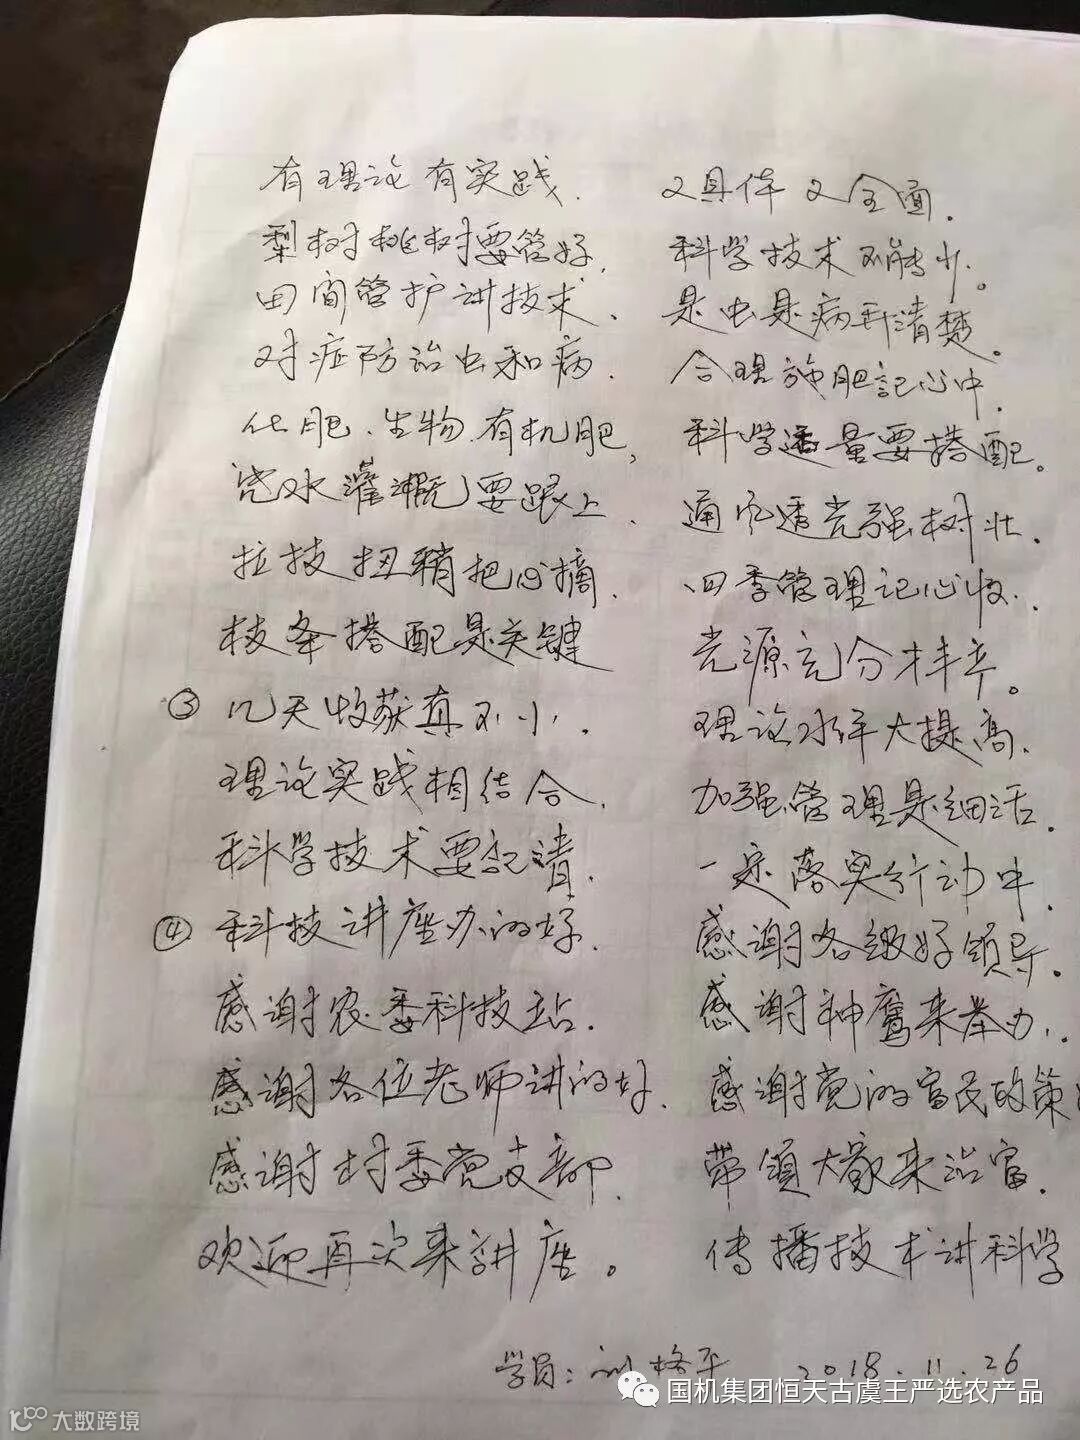 有理论有实践. 又具体又全面.
梨树桃树要管好, 科学技术不能少。
田间管护讲技术. 是虫是病弄清楚。
对症防治虫和病. 合理施肥記心中.
化肥.生物.有机肥, 科学适量要搭配。
浇水灌溉要跟上. 通风透光强树壮.
拉枝扭稍把心摘. 四季管理记心收.
枝条搭配是关键 光源充分才丰产。
③ 几天收获真不小. 理论水平大提高.
理论实践相结合. 加强管理是细活.
科学技术要记清. 一定落实行动中
④ 科技讲座办的好. 感谢各级好领导。
感谢农委科技站. 感谢神鹰来举办.
感谢各位老师讲的好. 感谢党的富民的策
感谢村委党支部. 带領大家来治富.
欢迎再次来讲座。 传播技术讲科学
学员:刘格平 2018.11.26
国机集团恒天古虞王严选农产品
大数跨境